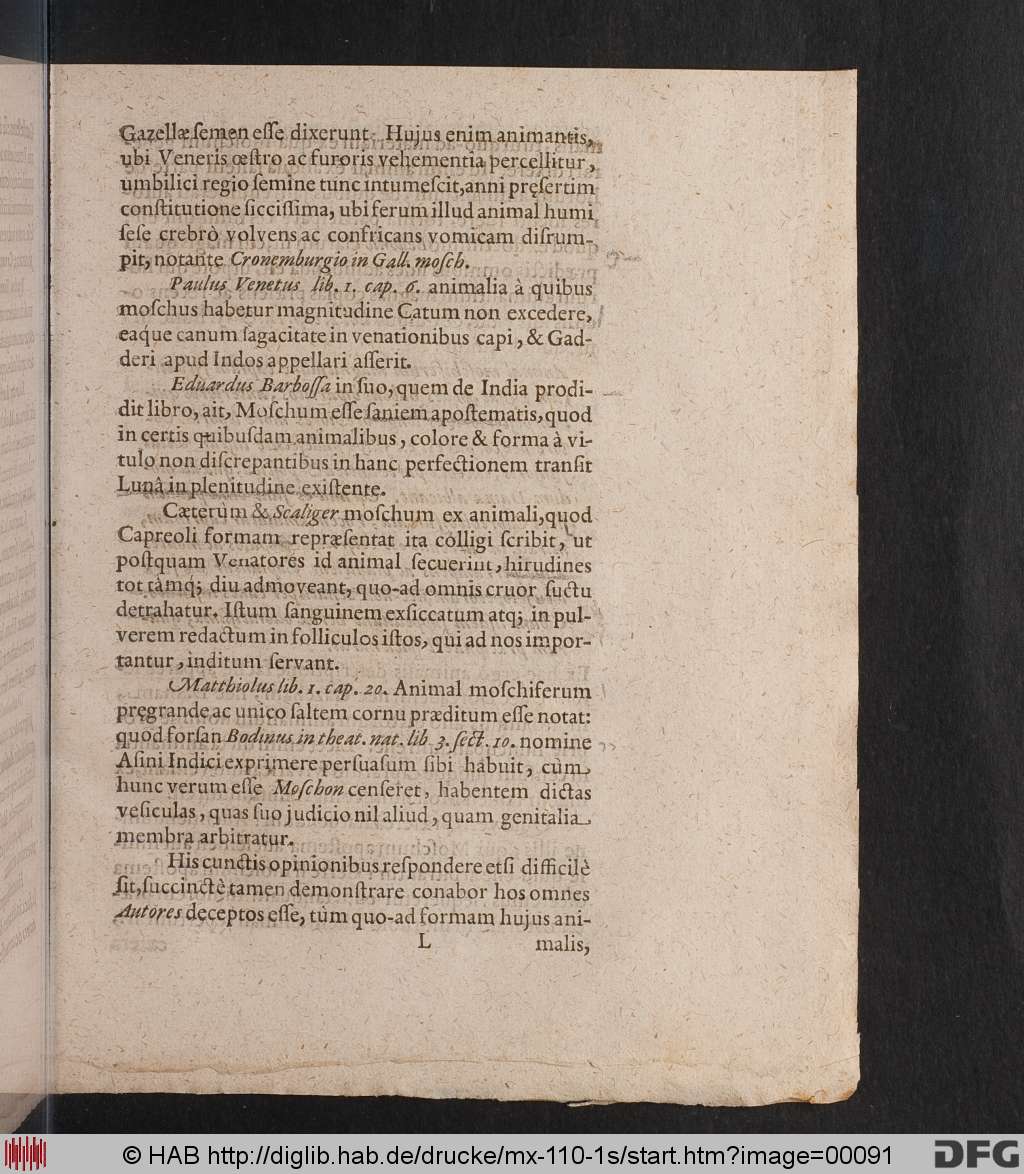 Gazellæ ſemen eſſe dixerunt. Hujus enim animantis,
ubi Veneris œſtro ac furoris vehementia percellitur,
umbilici regio ſemine tunc intumeſcit, anni pręſertim
conſtitutione ſicciſſima, ubi ferum illud animal humi
ſeſe crebrò volvens ac confricans vomicam diſrum-
pit, notante Cronemburgio in Gall. moſch.
Paulus Venetus lib. 1. cap. 6. animalia à quibus
moſchus habetur magnitudine Catum non excedere,
eaque canum ſagacitate in venationibus capi, & Gad-
deri apud Indos appellari aſſerit.
Eduardus Barboſſa in ſuo, quem de India prodi-
dit libro, ait, Moſchum eſſe ſaniem apoſtematis, quod
in certis quibuſdam animalibus, colore & forma à vi-
tulo non diſcrepantibus in hanc perfectionem tranſit
Lunâ in plenitudine exiſtente.
Cæterùm & Scaliger moſchum ex animali, quod
Capreoli formam repræſentat ita colligi ſcribit, ut
poſtquam Venatores id animal ſecuerint, hirudines
tot tàmq; diu admoveant, quo-ad omnis cruor ſuctu
detrahatur. Iſtum ſanguinem exſiccatum atq; in pul-
verem redactum in folliculos iſtos, qui ad nos impor-
tantur, inditum ſervant.
Matthiolus lib. 1. cap. 20. Animal moſchiferum
pręgrande ac unico ſaltem cornu præditum eſſe notat:
quod forſan Bodinus in theat. nat. lib 3. ſect. 10. nomine
Aſini Indici exprimere perſuaſum ſibi habuit, cùm
hunc verum eſſe Moſchon cenſeret, habentem dictas
veſiculas, quas ſuo judicio nil aliud, quam genitalia
membra arbitratur.
His cunctis opinionibus reſpondere etſi difficilè
ſit, ſuccinctè tamen demonſtrare conabor hos omnes
Autores deceptos eſſe, tùm quo-ad formam hujus ani-
L malis,
© HAB http://diglib.hab.de/drucke/mx-110-1s/start.htm?image=00091
DFG